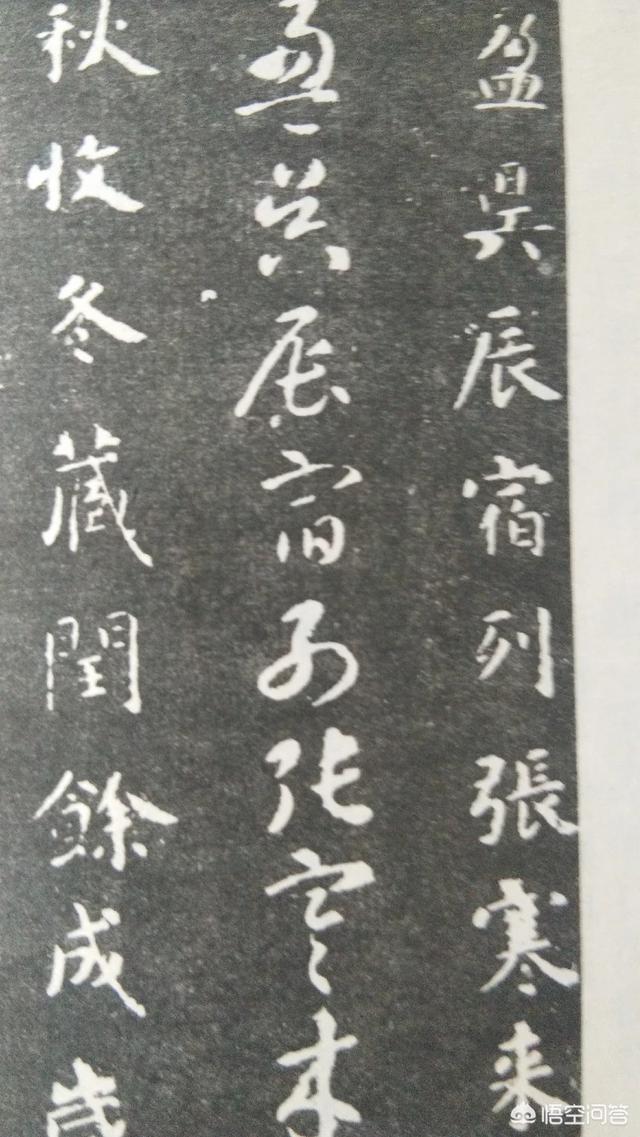 盈昃辰宿列張寒来
盈昃辰宿列張寒来
秋收冬藏閏餘成歲
悟空问答